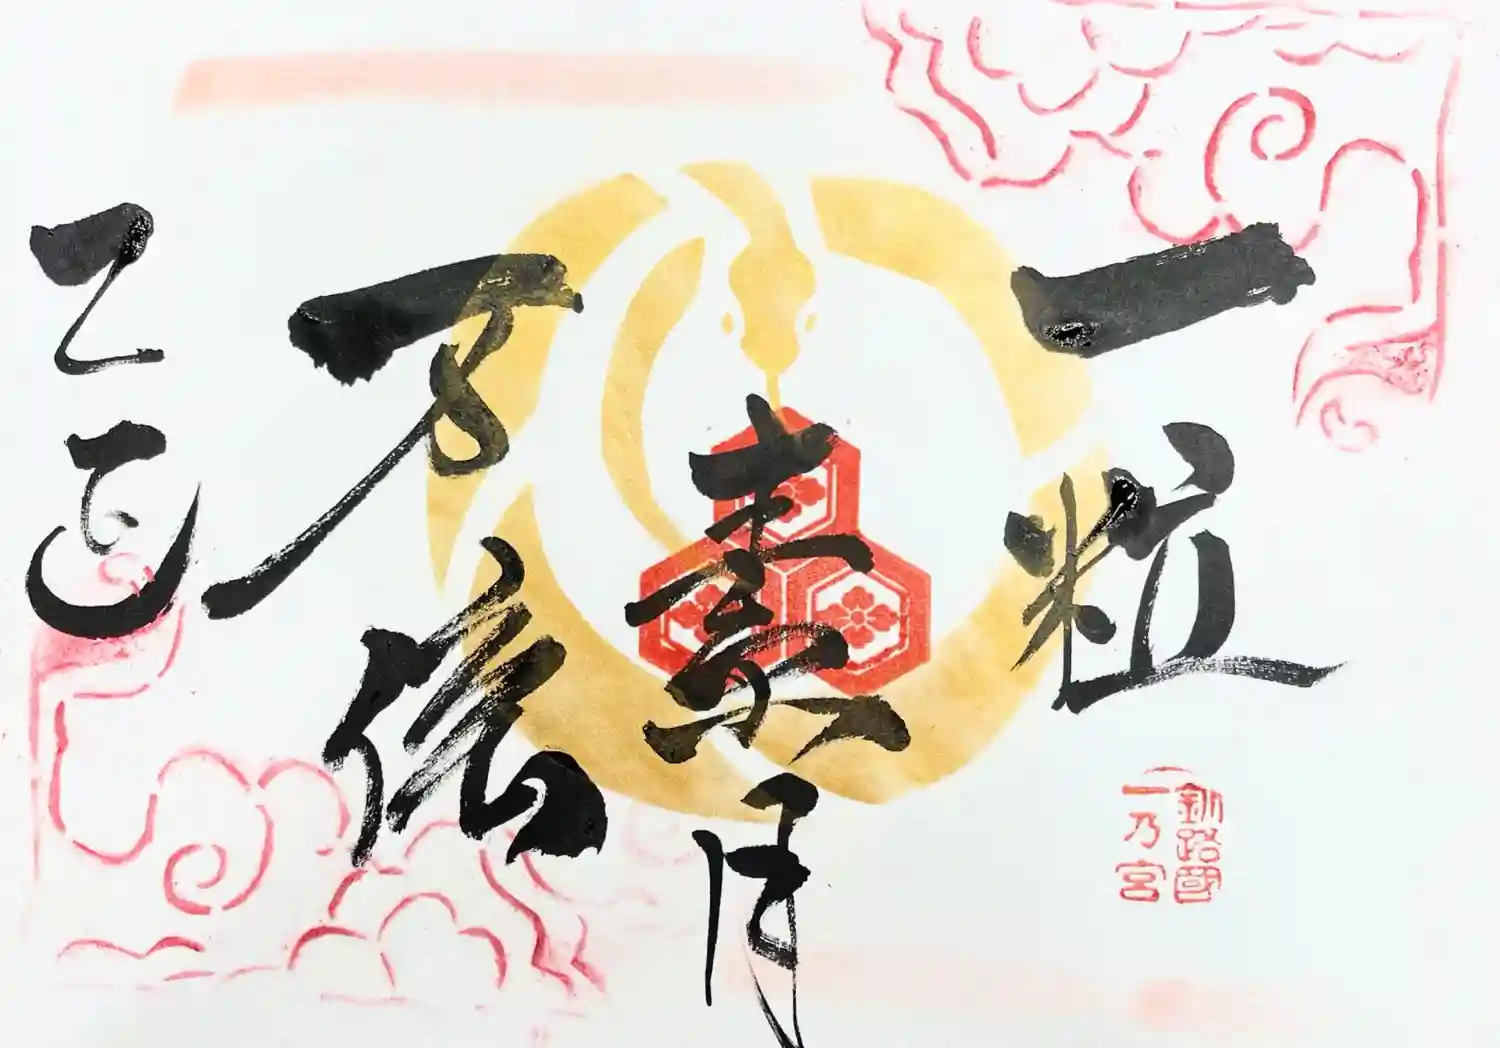 一粒
月
万倍
乙巳
釧路國
一乃宮